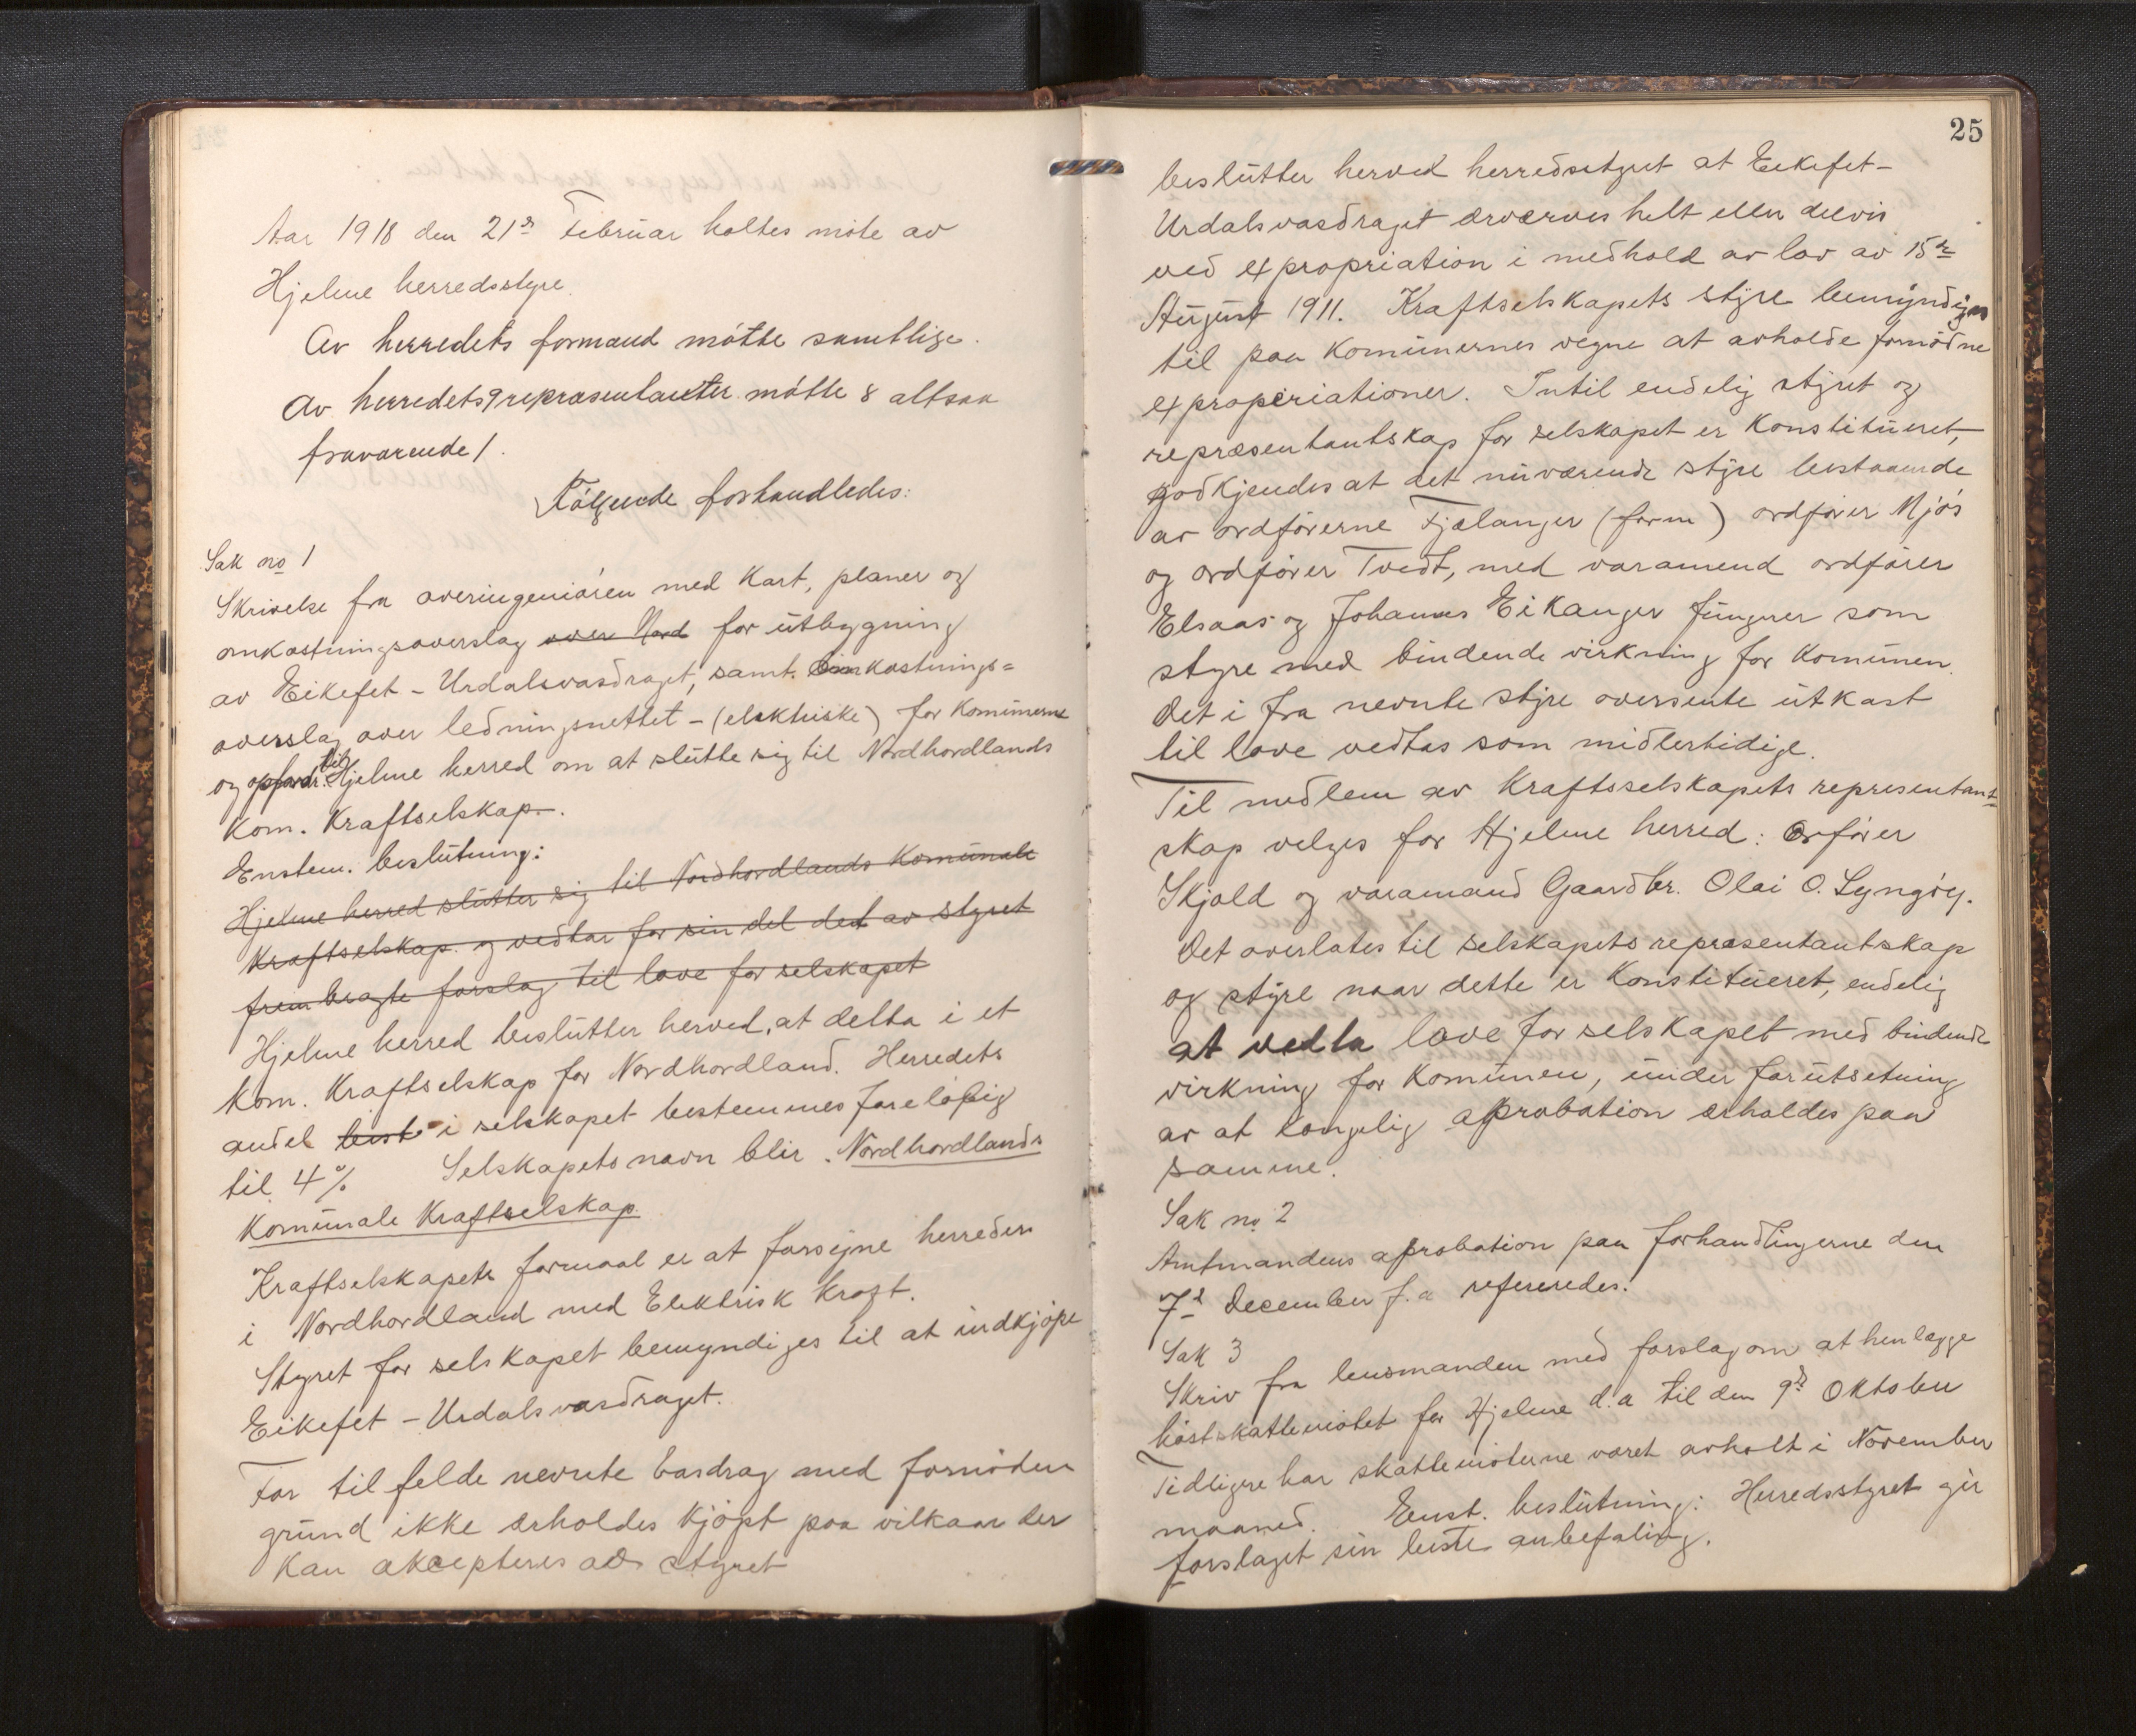 Aar 1918 den 21de Februar holtes møte av
Hjelme herredsstyre.
Av herredets formænd møtte samtlige.
Av herredets 9 repræsentanter møtte 8 altsaa
fraværende 1.
Følgende forhandledes:
Sak no 1
Skrivelse fra overingeniøren med Kart, planer og
omkostningsoverslag over Nord for utbygning
av Eikefet - Urdalsvasdraget, samt omkostnings=
overslag over ledningsnettet - (elektriske) for Komunerne
og opfordr. til Hjelme herred om at slutte sig til Nordhordlands
Kom. Kraftselskap.
Enstem. beslutning:
Hjelme herred slutter sig til Nordhordlands Komunale
Kraftselskap og vedtar for sin del det av styret
frembragte forslag til love for selskapet
Hjelme herred beslutter herved, at delta i et
Kom. Kraftselskap for Nordhordland. Herredets
andel best i selskapet bestemmes foreløbig
til 4% Selskapets navn blir Nordhordlands
Komunale Kraftselskap
Kraftselskapets formaal er at forsyne herreder
i Nordhordland med Elektrisk Kraft.
Styret for selskapet bemyndiges til at indkjøpe
Eikefet - Urdalsvasdraget.
For tilfelde nevnte vasdrag med fornøden
grund ikke erholdes Kjøpt paa vilkaar der
Kan akcepteres av styret
25
beslutter herved herredsstyret at Eikefet-
Urdalsvasdraget erværves helt eller delvis
ved expropriation i medhold av lov av 15de
August 1911. Kraftselskapets styre bemyndiges
til paa Komunernes vegne at avholde fornødne
expropiriationer. Intil endelig styret og
repræsentantskap for selskapet er Konstitueret,
godkjendes at det nuværende styre bestaaende
av ordførerne Fjælanger (form) ordfører Mjøs
og ordfører Tvedt, med varamend ordfører
Elsaas og Johannes Eikanger fungerer som
styre med bindende virkning for Komunen.
Det i fra nevnte styre oversente utkast
til love vedtas som midlertidige.
Til medlem av Kraftsselskapets representant=
skap velges for Hjelme herred: Orfører
Skjold og varamand Gaardbr. Olai O. Lyngøy.
Det overlates til selskapets repræsentantskap
og styre naar dette er Konstitueret, endelig
at vedta love for selskapet med bindende
virkning for Komunen, under forutsetning
av at kongelig aprobation erholdes paa
samme.
Sak no 2
Amtmandens aprobation paa forhandlingerne den
7de December f.a refereredes.
Sak 3
Skriv fra lensmanden med forslag om at henlægge
høstskattemøtet for Hjelme d.a til den 9de Oktober
Tidligere har skattemøterne været avholt i November
maaned. Enst. beslutning: Herredsstyret gir
forslaget sin beste anbefaling.